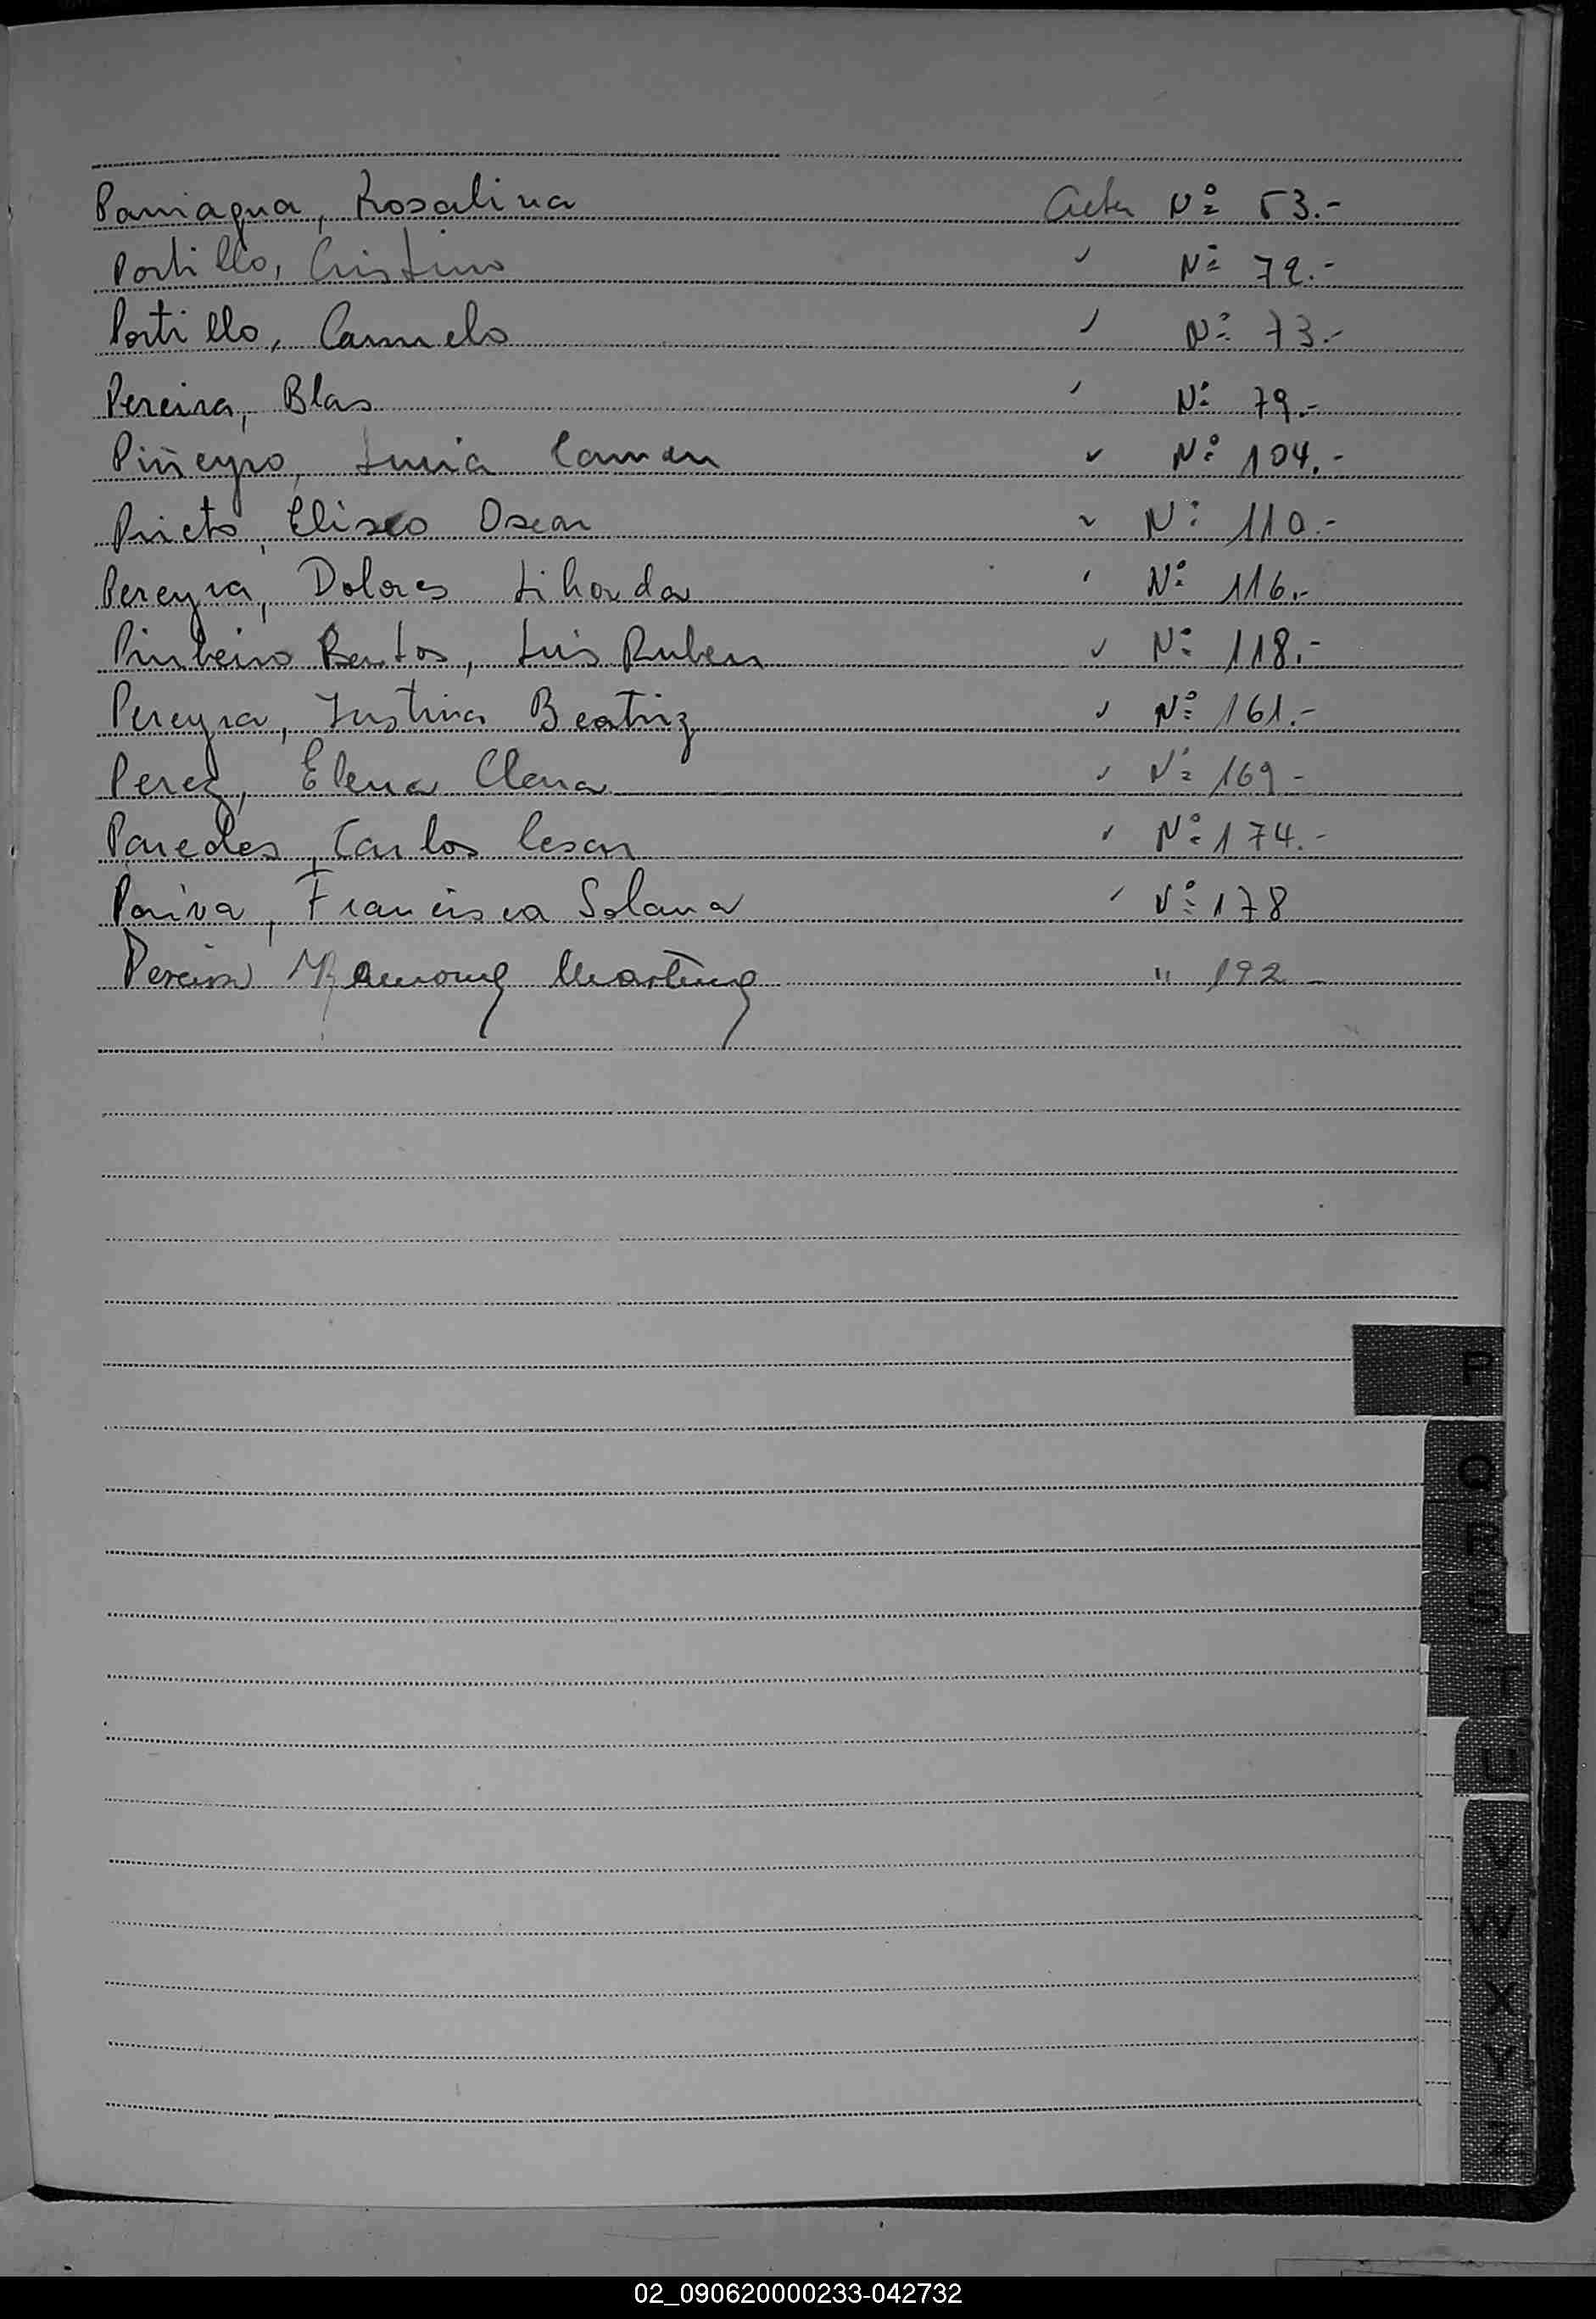 Paniagua, Rosalina Acta Nº 53.-
Portillo, Cristino " Nº 72.-
Portillo, Carmelo " Nº 73.-
Pereira, Blas " Nº 79.-
Piñeyro, Lucia Carmen " Nº 104.-
Prieto, Eliseo Oscar " Nº 110.-
Pereyra, Dolores Lihorda " Nº 116.-
Pinheiro Bentos, Luis Ruben " Nº 118.-
Pereyra, Justina Beatriz " Nº 161.-
Perez, Elena Clara " Nº 169-
Paredes, Carlos Cesar " Nº 174.-
Paiva, Francisca Solana " Nº 178
Pereira Ramona Martina " 192-
P
Q
R
S
T
U
V
W
X
Y
Z
02_090620000233-042732